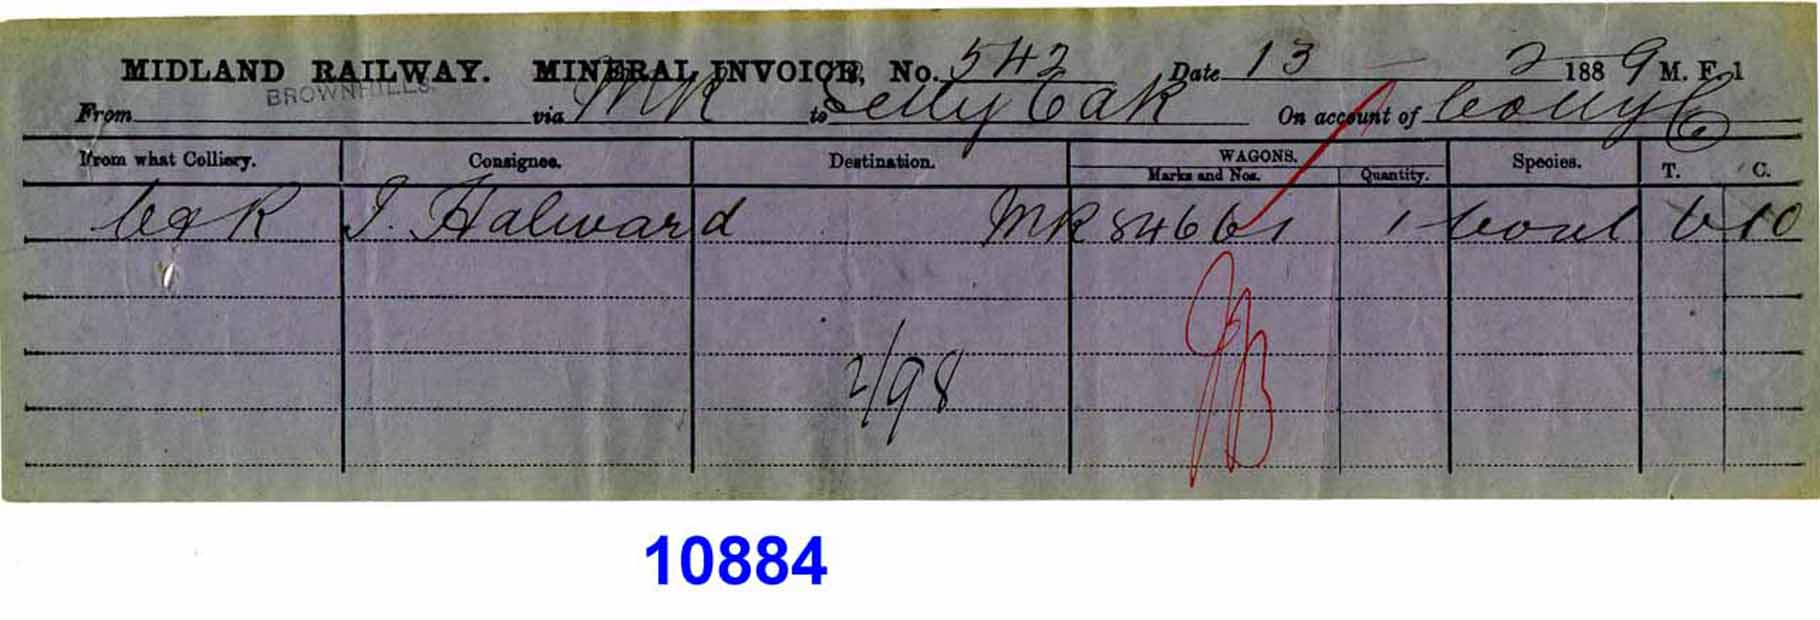 MIDLAND RAILWAY. MINERAL INVOICE, No. 542 Date 13 2 1889 M. F. 1
From BROWNHILLS. via MR to Selly Oak On account of Colly Co
From what Colliery. Consignee. Destination. WAGONS. Species. T. C.
Marks and Nos. Quantity.
C&R J. Halward MR 84661 1 Coal 6 10
2/98
10884